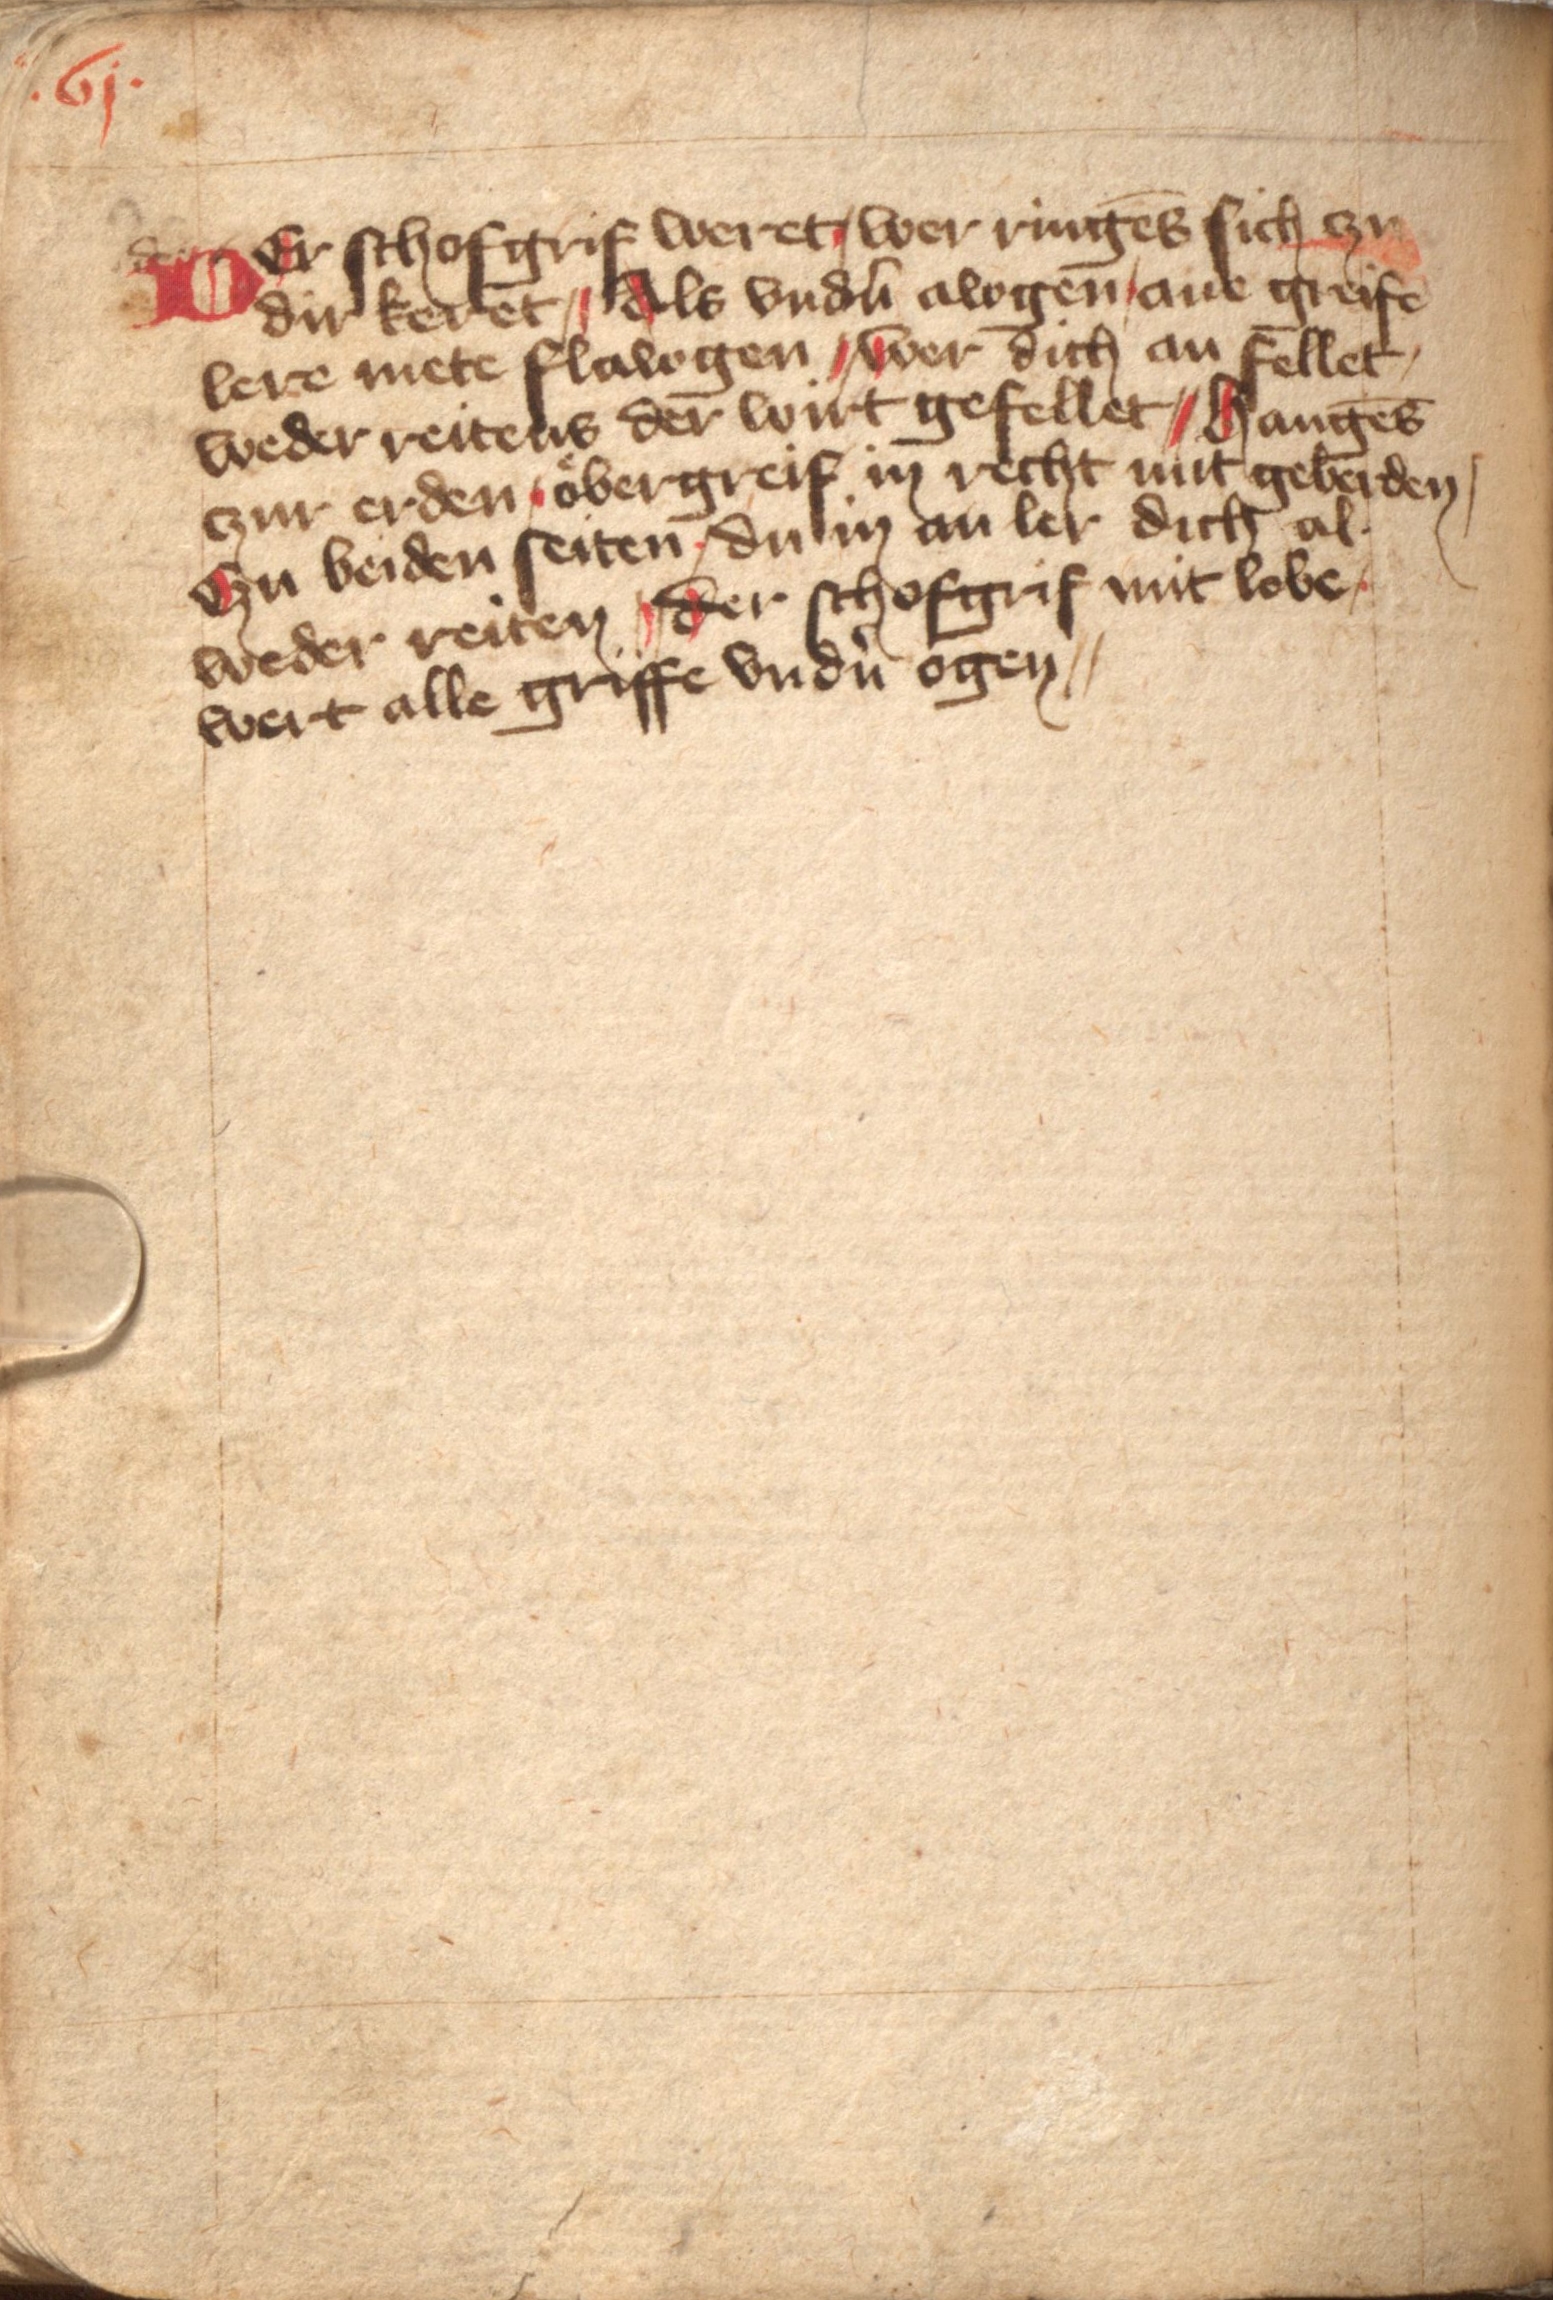 .61.
DEr schofgrif weret / wer ringēs sich zu
dir keret // Als vndũ awgen / ane greife
lere mete flawgen // wer dich an fellet /
weder reitens der wirt gefellet // Hangēs
zur erden / öbergreif in recht mit geberden /
Zu beiden seiten / du in an ler dich al
weder reiten // der schofgrif mit lobe /
wert alle griffe vndũ ogen //